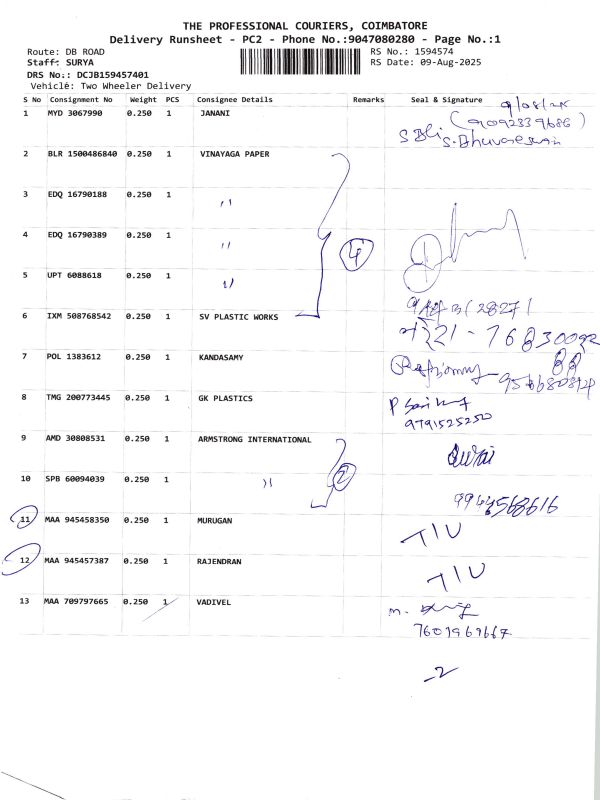 THE PROFESSIONAL COURIERS, COIMBATORE
Delivery Runsheet - PC2 - Phone No.:9047080280 - Page No.:1
Route: DB ROAD RS No.: 1594574
Staff: SURYA RS Date: 09-Aug-2025
DRS No.: DCJB159457401
Vehicle: Two Wheeler Delivery
S No Consignment No Weight PCS Consignee Details Remarks Seal & Signature
9/08/25
1 MYD 3067990 0.250 1 JANANI (9092339686)
2 BLR 1500486840 0.250 1 VINAYAGA PAPER
3 EDQ 16790188 0.250 1 〃
4 EDQ 16790389 0.250 1 〃 4
5 UPT 6088618 0.250 1 〃
6 IXM 508768542 0.250 1 SV PLASTIC WORKS
7 POL 1383612 0.250 1 KANDASAMY
8 TMG 200773445 0.250 1 GK PLASTICS
9791525250
9 AMD 30808531 0.250 1 ARMSTRONG INTERNATIONAL
10 SPB 60094039 0.250 1 〃 2
11 MAA 945458350 0.250 1 MURUGAN TIU
12 MAA 945457387 0.250 1 RAJENDRAN TIU
13 MAA 709797665 0.250 1 VADIVEL
7601969667
-2